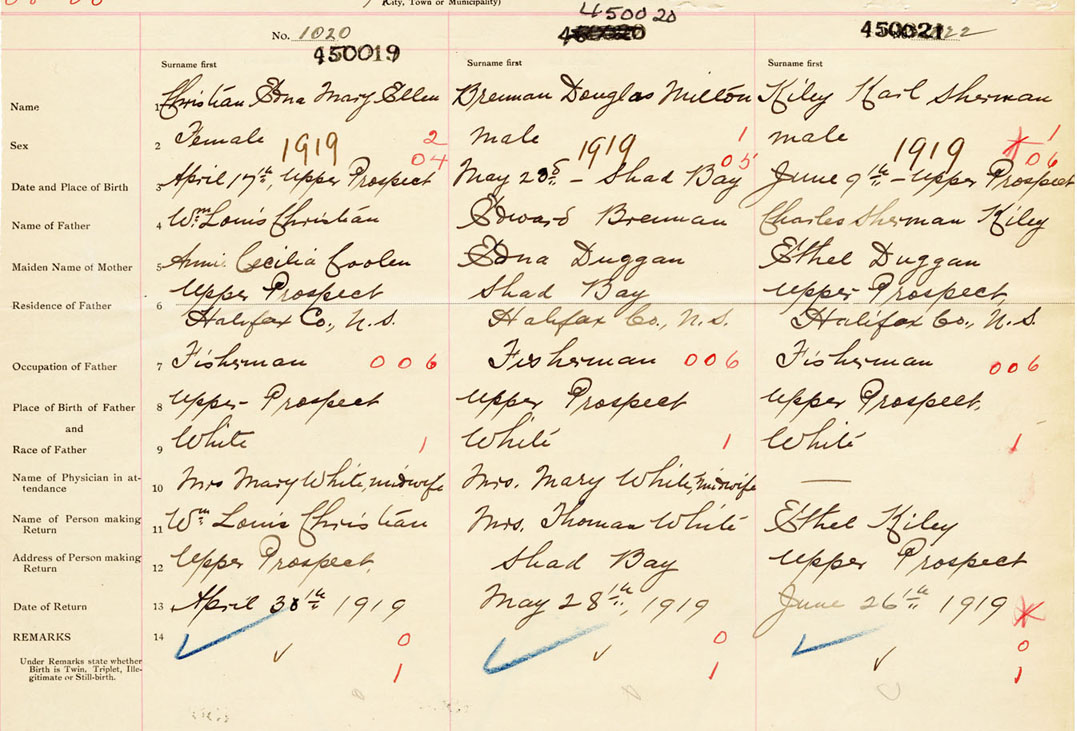 (City, Town or Municipality)
No. 1020
450019
450020
450021 1022
Surname first Surname first Surname first
Name 1 Christian Edna Mary Ellen Brennan Douglas Milton Kiley Karl Sherman
Sex 2 Female 1919 2 male 1919 1 male 1919 1
04 05 06
Date and Place of Birth 3 April 17th, Upper Prospect May 23rd – Shad Bay June 9th – Upper Prospect
Name of Father 4 Wm Louis Christian Edward Brennan Charles Sherman Kiley
Maiden Name of Mother 5 Annie Cecilia Coolen Edna Duggan Ethel Duggan
Residence of Father 6 Upper Prospect Shad Bay Upper Prospect,
Halifax Co., N.S. Halifax Co., N.S. Halifax Co., N.S.
Occupation of Father 7 Fisherman 006 Fisherman 006 Fisherman 006
Place of Birth of Father 8 Upper Prospect Upper Prospect Upper Prospect.
and
Race of Father 9 White 1 White 1 White 1
Name of Physician in at-
tendance 10 Mrs Mary White, midwife Mrs. Mary White, midwife —
Name of Person making
Return 11 Wm Louis Christian Mrs. Thomas White Ethel Kiley
Address of Person making
Return 12 Upper Prospect, Shad Bay Upper Prospect
Date of Return 13 April 30th 1919 May 28th, 1919 June 26th 1919
REMARKS 14 0 0 0
Under Remarks state whether
Birth is Twin, Triplet, Ille-
gitimate or Still-birth. 1 1 1